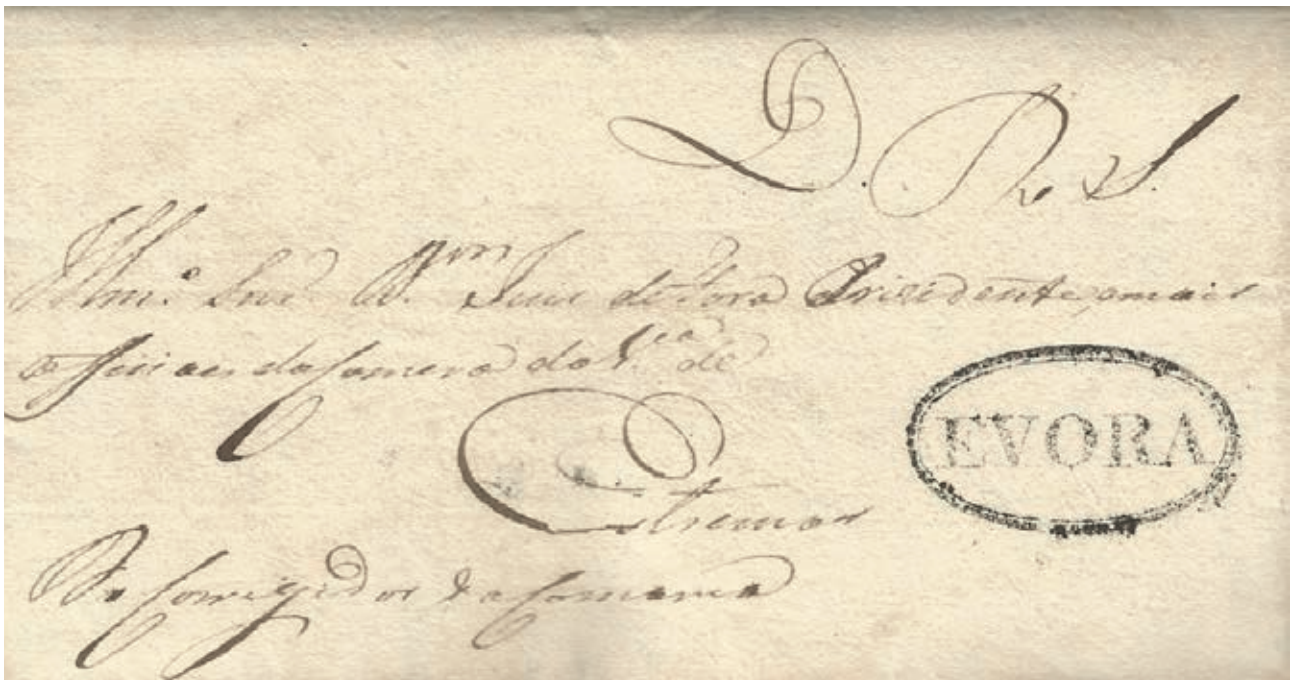 D. R. S.
Illm.º Snr. Juis de Fora Prezidente, e mais
officiaes da Camera da V.ª de
Estremos
EVORA
Do Corregidor da Comarca